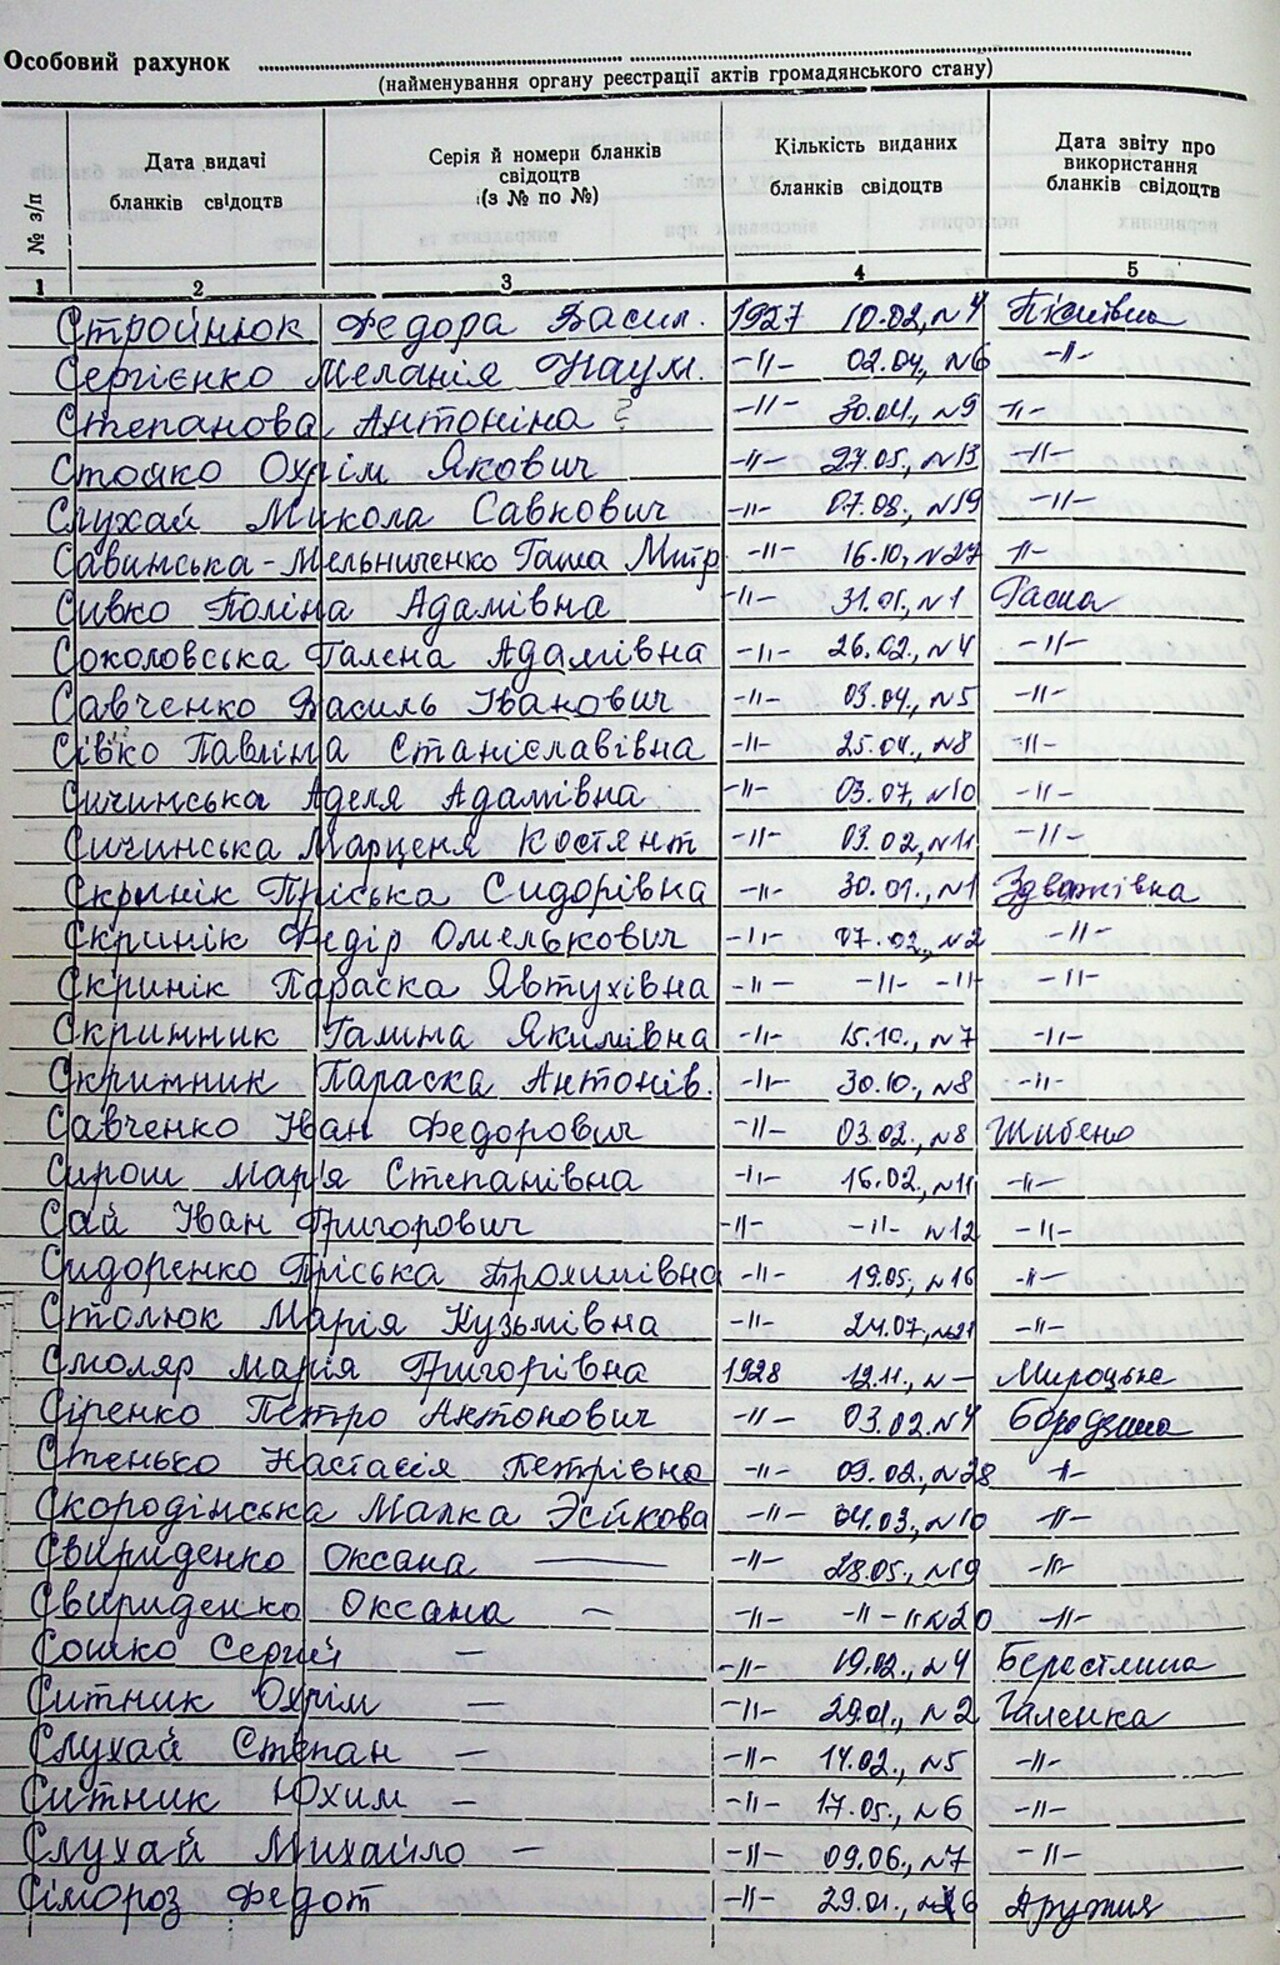 Особовий рахунок
(найменування органу реєстрації актів громадянського стану)
№ з/п Дата видачі бланків свідоцтв Серія й номери бланків свідоцтв (з № по №) Кількість виданих бланків свідоцтв Дата звіту про використання бланків свідоцтв
1 2 3 4 5
Стройнюк Федора Васил. 1927 10.02, №4
Сергієнко Меланія Наум. -"- 02.04., №6 -"-
Степанова Антоніна ? -"- 30.04., №9 -"-
Стойко Охрім Якович -"- 27.05., №13 -"-
Слухай Микола Савкович -"- 07.08., №19 -"-
Савинська-Мельниченко Гаша Митр. -"- 16.10, №27 -"-
Сивко Поліна Адамівна -"- 31.01., №1 Раска
Соколовська Галена Адамівна -"- 26.02., №4 -"-
Савченко Василь Іванович -"- 03.04., №5 -"-
Сівко Павліна Станіславівна -"- 25.04., №8 -"-
Сичинська Аделя Адамівна -"- 03.07, №10 -"-
Сичинська Марценя Костянт -"- 03.02, №11 -"-
Скринік Пріська Сидорівна -"- 30.01., №1 Здвижівка
Скринік Федір Омелькович -"- 07.02., №2 -"-
Скринік Параска Явтухівна -"- -"- -"- -"-
Скринник Галина Якимівна -"- 15.10., №7 -"-
Скринник Параска Антонів. -"- 30.10., №8 -"-
Савченко Іван Федорович -"- 03.02., №8 Шибено
Сирош Мар'я Степанівна -"- 16.02., №11 -"-
Сай Іван Григорович -"- -"- №12 -"-
Сидоренко Пріська Трохимівна -"- 19.05, №16 -"-
Столюк Марія Кузьмівна -"- 24.07, №21 -"-
Смоляр Марія Григорівна 1928 12.11., № — Мироцьке
Сіренко Петро Антонович -"- 03.02. №4 Бородянка
Стенько Настасія Петрівна -"- 09.02, №28 -"-
Скородінська Малка Эсйкова -"- 04.03., №10 -"-
Свириденко Оксана — -"- 28.05., №19 -"-
Свириденко Оксана — -"- -"- №20 -"-
Сошко Сергій — -"- 19.02., №4 Берестянка
Ситник Охрім — -"- 29.01., №2 Галенка
Слухай Степан — -"- 14.02., №5 -"-
Ситник Юхим — -"- 17.05., №6 -"-
Слухай Михайло — -"- 09.06., №7 -"-
Сімороз Федот -"- 29.01., №6 Дружня